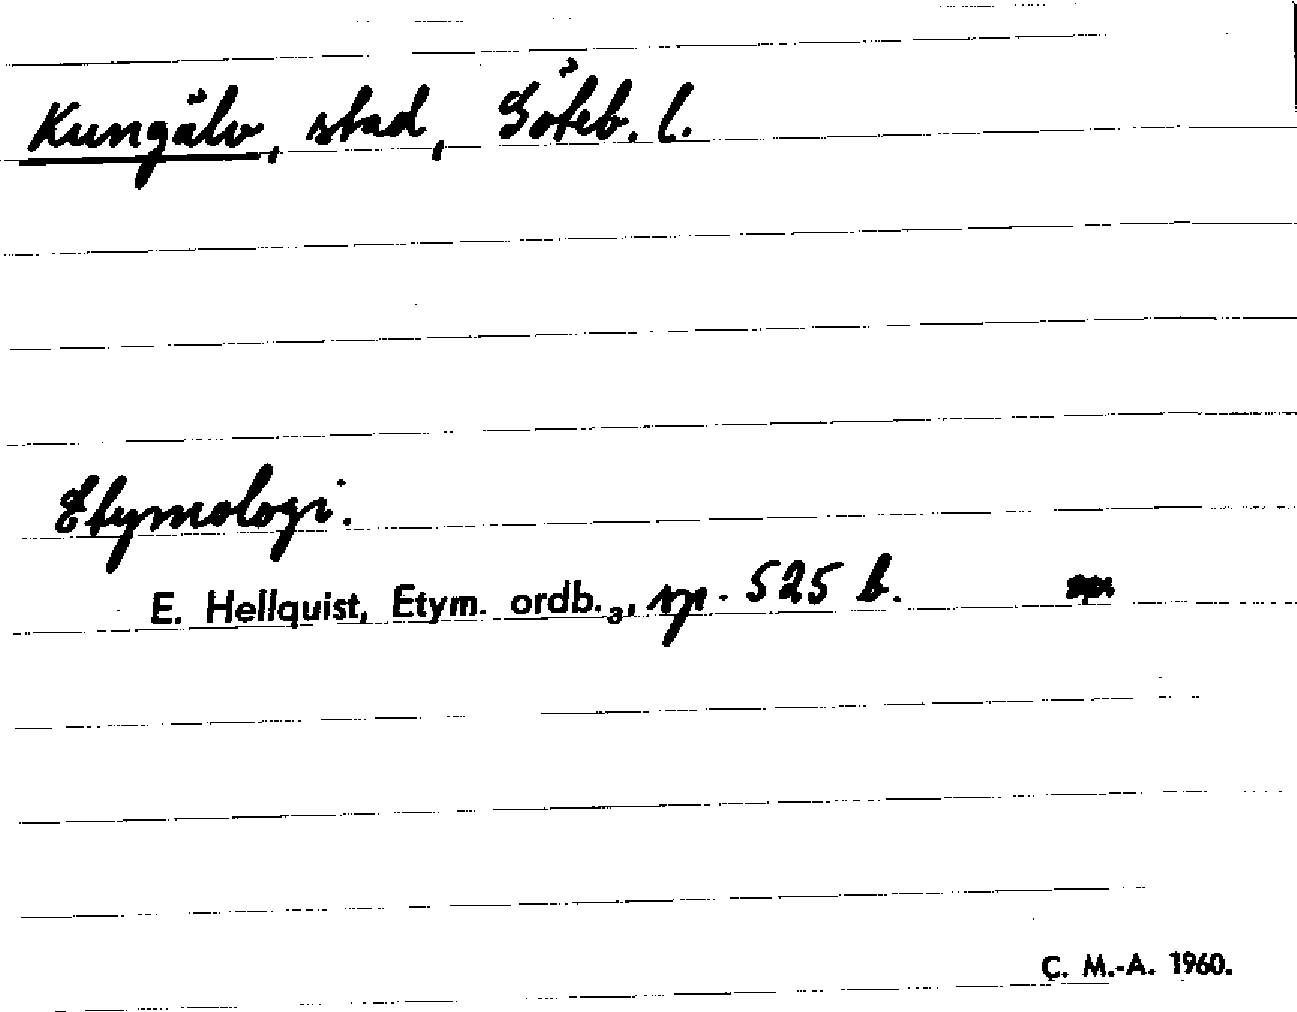 Kungälv, stad, Göteb. l.
Etymologi.
E. Hellquist, Etym. ordb.₃, sp. 525 b.
C. M.-A. 1960.